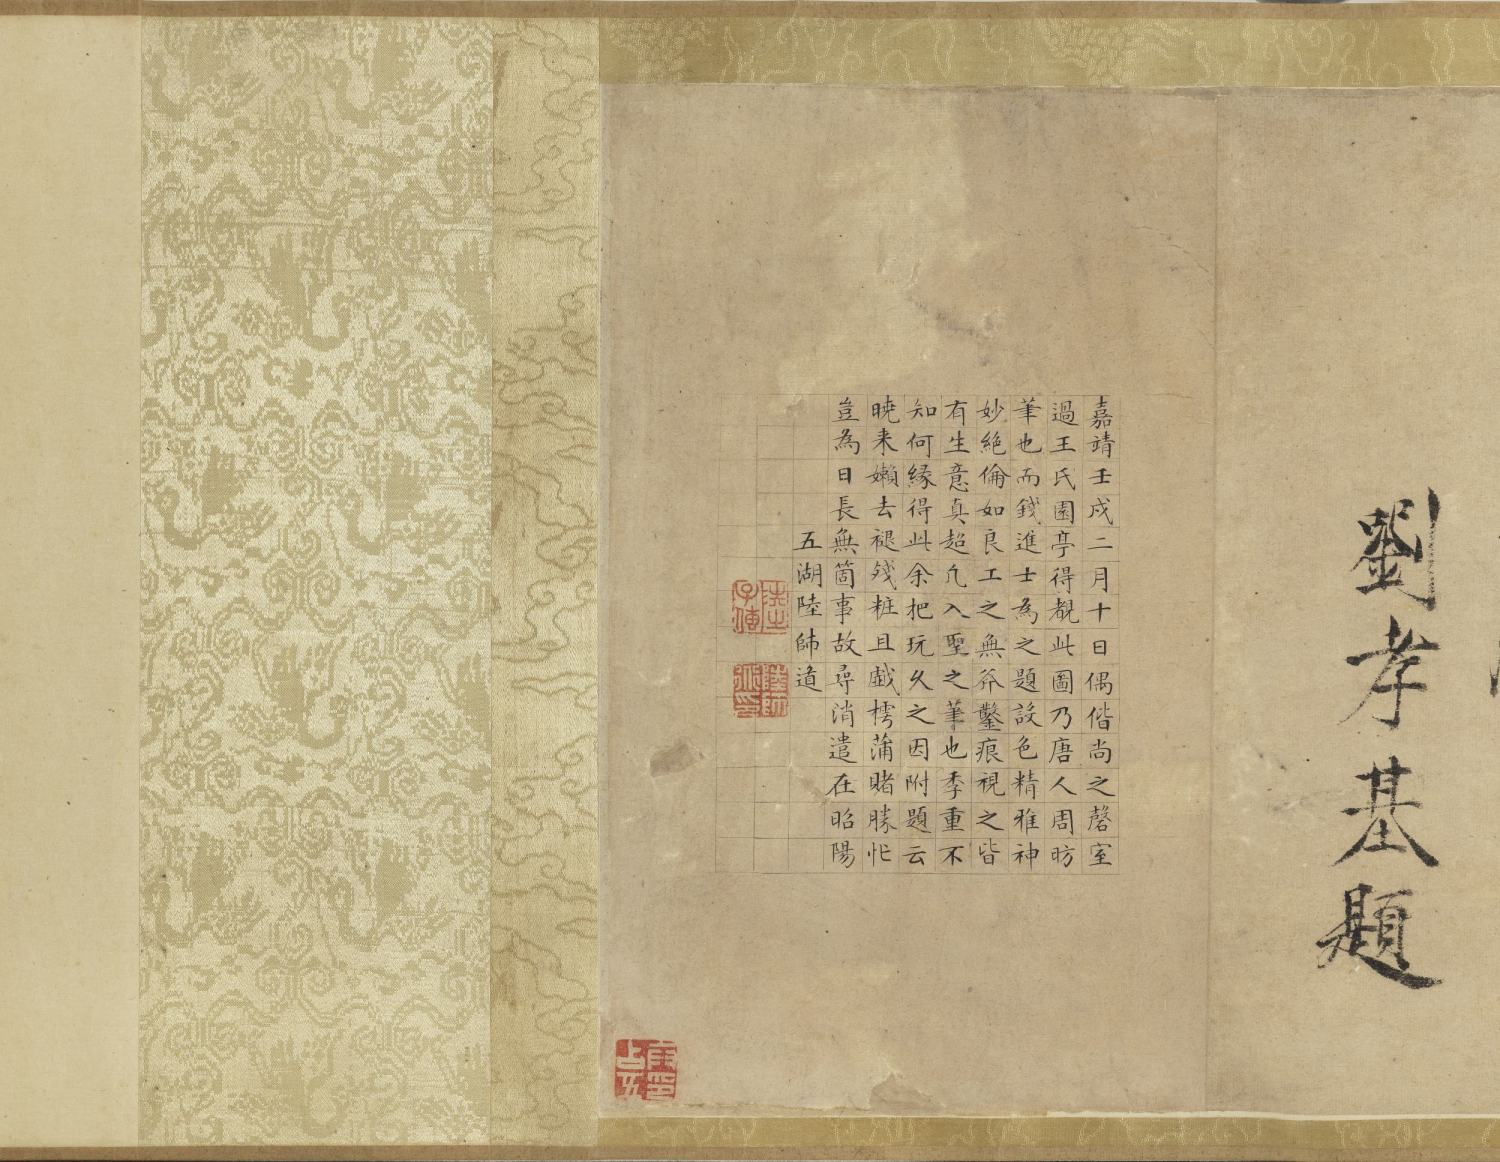 劉孝基題
嘉靖壬戌二月十日偶偕尚之磬室
過王氏園亭得覩此圖乃唐人周昉
筆也而錢進士為之題設色精雅神
妙絕倫如良工之無斧鑿痕視之皆
有生意真超凡入聖之筆也季重不
知何緣得此余把玩久之因附題云
曉来嬾去褪殘粧且戲樗蒲賭勝忙
豈為日長無箇事故尋消遣在昭陽
五湖陸師道
陸師